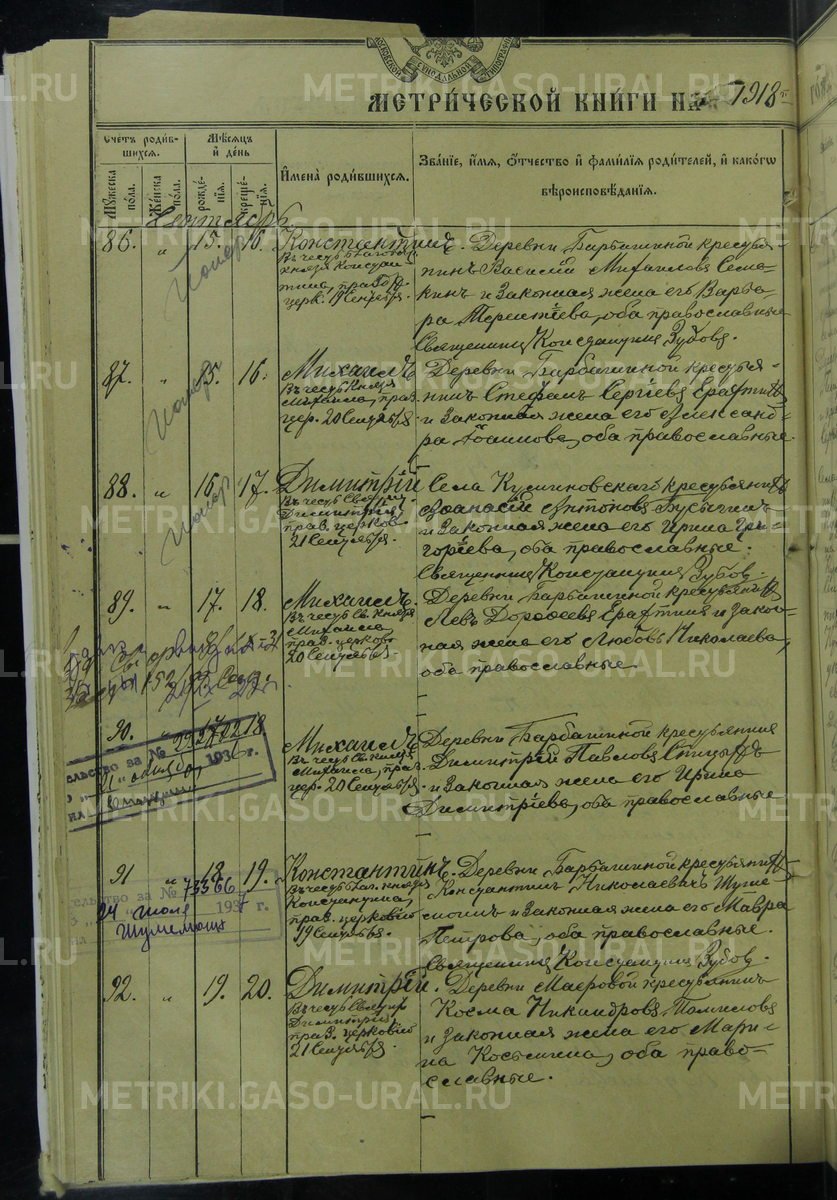 МЕТРИЧЕСКОЙ КНИГИ НА 1918 г.
Счетъ родившихся.
Мужеска пола.
Женска пола.
Мѣсяцъ и день
рожденія.
крещенія.
Имена родившихся.
Званіе, имя, отчество и фамилія родителей, и какого вѣроисповѣданія.
Сентябрь
86. " 15. 16. Константинъ.
Въ честь благов.
князя Констан-
тина, праздн.
церк. 19 Сентября.
Деревни Барбашиной крестья-
нинъ Василій Михаиловъ Сема-
кинъ и законная жена его Варва-
ра Терентіева, оба православные
Священникъ Констаптинъ Зубовъ.
87. " 15. 16. Михаилъ
Въ честь Князя
Михаила, праз.
цер. 20 Сентября.
Деревни Барбашиной крестья-
нинъ Стефанъ Сергіевъ
и законная жена его Александ-
ра, оба православные.
88. " 16. 17. Димитрій
Въ честь Свят.
Димитрія
праз. церков
21 Сентября.
Села крестьянинъ
Аѳанасій Антоновъ
и законная жена его Ирина Гри-
горіева, оба православные.
Священникъ Константинъ Зубовъ.
89. " 17. 18. Михаилъ.
Въ честь Св. Князя
Михаила,
праз. церково
20 Сентября.
Деревни Барбашиной крестьянинъ
Левъ Дороѳеевъ и закон-
ная жена его Любовь Николаева,
оба православные
90. " 17 18
Михаилъ
Въ честь Св. князя
Михаила, праз.
цер. 20 Сентября.
Деревни Барбашиной крестьянинъ
Димитрій Павловъ
и законная жена его Ирина
Димитріева, оба православные
ельство за № 1936 г.
91 " 18 19. Константинъ.
Въ честь благ. князя
Константина,
праз. церковію
19 Сентября.
Деревни Барбашиной крестьянинъ
Константинъ Николаевичъ Шуме-
и законная жена его Мавра
Петрова, оба православные.
Священникъ Константинъ Зубовъ.
ельство за № 73366
24 июля 1937 г.
92. " 19. 20. Димитрій.
Въ честь Святит.
Димитрія,
праз. церковію
21 Сентября.
Деревни Маеровой крестьянинъ
Косма Никандровъ
и законная жена его Мари-
на Космина, оба право-
славные.
METRIKI.GASO-URAL.RU